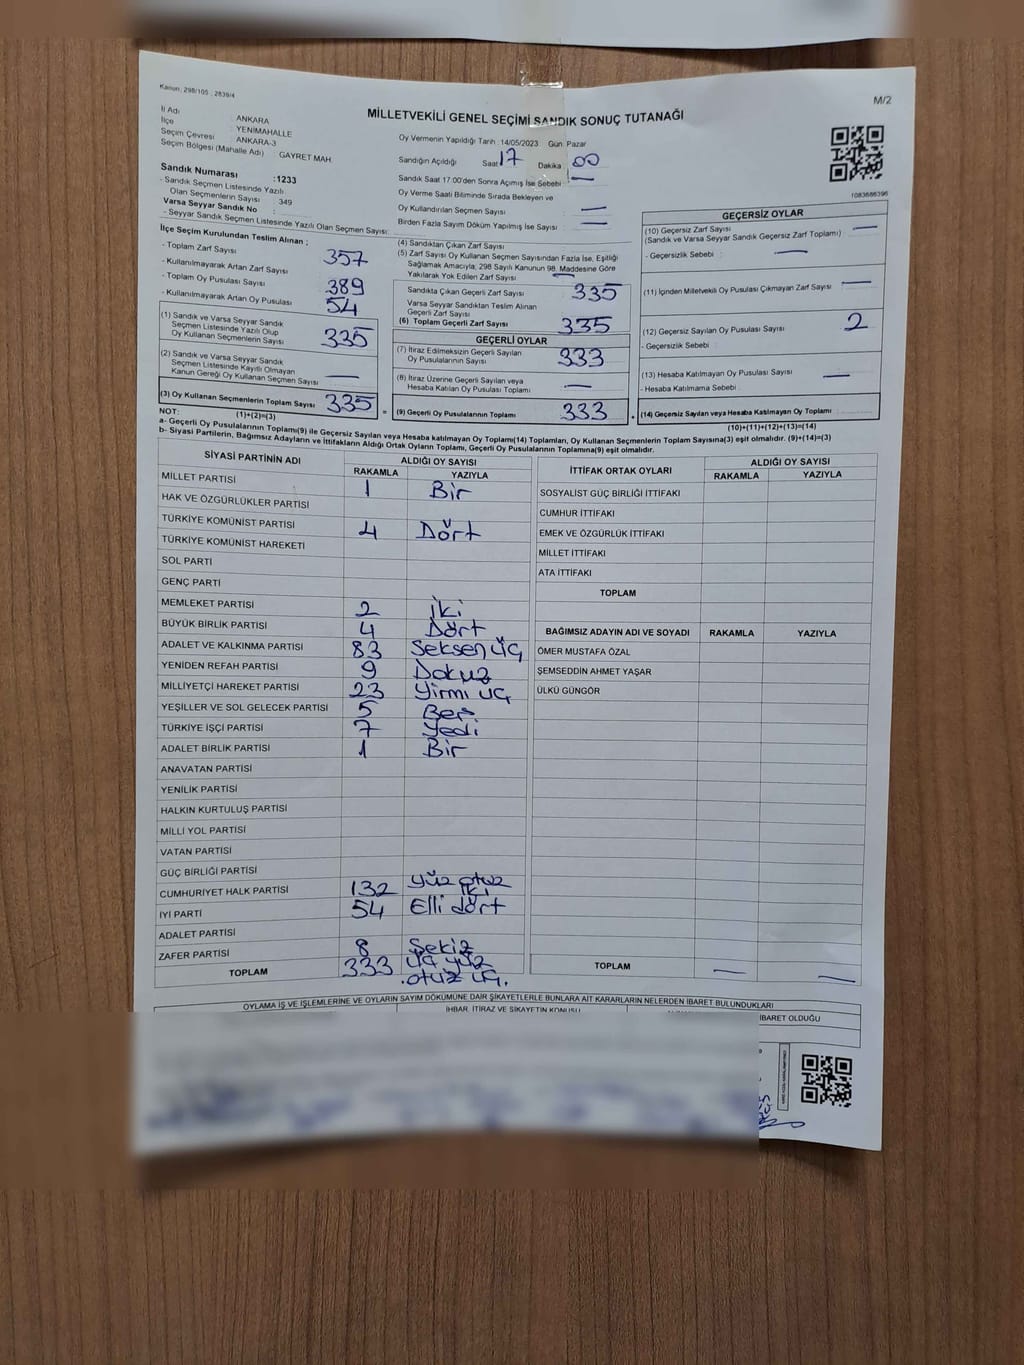 Kanun: 298/105 , 2839/4
M/2
MİLLETVEKİLİ GENEL SEÇİMİ SANDIK SONUÇ TUTANAĞI
İl Adı : ANKARA
İlçe : YENİMAHALLE
Seçim Çevresi : ANKARA-3
Seçim Bölgesi (Mahalle Adı) : GAYRET MAH.
Sandık Numarası :1233
- Sandık Seçmen Listesinde Yazılı
Olan Seçmenlerin Sayısı : 349
Varsa Seyyar Sandık No :
- Seyyar Sandık Seçmen Listesinde Yazılı Olan Seçmen Sayısı:
Oy Vermenin Yapıldığı Tarih :14/05/2023 Gün: Pazar
Sandığın Açıldığı Saat 17 Dakika 00
Sandık Saat 17:00'den Sonra Açımış İse Sebebi : —
Oy Verme Saati Bitiminde Sırada Bekleyen ve
Oy Kullandırılan Seçmen Sayısı : —
Birden Fazla Sayım Döküm Yapılmış İse Sayısı : —
1083686396
İlçe Seçim Kurulundan Teslim Alınan :
- Toplam Zarf Sayısı : 357
- Kullanılmayarak Artan Zarf Sayısı :
- Toplam Oy Pusulası Sayısı : 389
- Kullanılmayarak Artan Oy Pusulası : 54
(1) Sandık ve Varsa Seyyar Sandık
Seçmen Listesinde Yazılı Olup
Oy Kullanan Seçmenlerin Sayısı : 335
(2) Sandık ve Varsa Seyyar Sandık
Seçmen Listesinde Kayıtlı Olmayan
Kanun Gereği Oy Kullanan Seçmen Sayısı : —
(3) Oy Kullanan Seçmenlerin Toplam Sayısı : 335
(1)+(2)=(3)
(4) Sandıktan Çıkan Zarf Sayısı
(5) Zarf Sayısı Oy Kullanan Seçmen Sayısından Fazla İse, Eşitliği
Sağlamak Amacıyla, 298 Sayılı Kanunun 98. Maddesine Göre
Yakılarak Yok Edilen Zarf Sayısı : —
Sandıkta Çıkan Geçerli Zarf Sayısı : 335
Varsa Seyyar Sandıktan Teslim Alınan
Geçerli Zarf Sayısı
(6) Toplam Geçerli Zarf Sayısı : 335
GEÇERLİ OYLAR
(7) İtiraz Edilmeksizin Geçerli Sayılan
Oy Pusulalarının Sayısı : 333
(8) İtiraz Üzerine Geçerli Sayılan veya
Hesaba Katılan Oy Pusulası Toplamı : —
= (9) Geçerli Oy Pusulalarının Toplamı : 333
GEÇERSİZ OYLAR
(10) Geçersiz Zarf Sayısı : —
(Sandık ve Varsa Seyyar Sandık Geçersiz Zarf Toplamı)
- Geçersizlik Sebebi : —
(11) İçinden Milletvekili Oy Pusulası Çıkmayan Zarf Sayısı : —
(12) Geçersiz Sayılan Oy Pusulası Sayısı : 2
- Geçersizlik Sebebi :
(13) Hesaba Katılmayan Oy Pusulası Sayısı : —
- Hesaba Katılmama Sebebi :
+ (14) Geçersiz Sayılan veya Hesaba Katılmayan Oy Toplamı :
(10)+(11)+(12)+(13)=(14)
NOT:
a- Geçerli Oy Pusulalarının Toplamı(9) ile Geçersiz Sayılan veya Hesaba katılmayan Oy Toplamı(14) Toplamları, Oy Kullanan Seçmenlerin Toplam Sayısına(3) eşit olmalıdır. (9)+(14)=(3)
b- Siyasi Partilerin, Bağımsız Adayların ve İttifakların Aldığı Ortak Oyların Toplamı, Geçerli Oy Pusulalarının Toplamına(9) eşit olmalıdır.
SİYASİ PARTİNİN ADI ALDIĞI OY SAYISI
RAKAMLA YAZIYLA
MİLLET PARTİSİ 1 Bir
HAK VE ÖZGÜRLÜKLER PARTİSİ
TÜRKİYE KOMÜNİST PARTİSİ 4 Dört
TÜRKİYE KOMÜNİST HAREKETİ
SOL PARTİ
GENÇ PARTİ
MEMLEKET PARTİSİ 2 İki
BÜYÜK BİRLİK PARTİSİ 4 Dört
ADALET VE KALKINMA PARTİSİ 83 Seksen üç
YENİDEN REFAH PARTİSİ 9 Dokuz
MİLLİYETÇİ HAREKET PARTİSİ 23 Yirmi üç
YEŞİLLER VE SOL GELECEK PARTİSİ 5 Beş
TÜRKİYE İŞÇİ PARTİSİ 7 Yedi
ADALET BİRLİK PARTİSİ 1 Bir
ANAVATAN PARTİSİ
YENİLİK PARTİSİ
HALKIN KURTULUŞ PARTİSİ
MİLLİ YOL PARTİSİ
VATAN PARTİSİ
GÜÇ BİRLİĞİ PARTİSİ
CUMHURİYET HALK PARTİSİ 132 Yüz otuz iki
İYİ PARTİ 54 Elli dört
ADALET PARTİSİ
ZAFER PARTİSİ 8 Sekiz
TOPLAM 333 üç yüz
otuz üç.
İTTİFAK ORTAK OYLARI ALDIĞI OY SAYISI
RAKAMLA YAZIYLA
SOSYALİST GÜÇ BİRLİĞİ İTTİFAKI
CUMHUR İTTİFAKI
EMEK VE ÖZGÜRLÜK İTTİFAKI
MİLLET İTTİFAKI
ATA İTTİFAKI
TOPLAM
BAĞIMSIZ ADAYIN ADI VE SOYADI RAKAMLA YAZIYLA
ÖMER MUSTAFA ÖZAL
ŞEMSEDDİN AHMET YAŞAR
ÜLKÜ GÜNGÖR
TOPLAM — —
OYLAMA İŞ VE İŞLEMLERİNE VE OYLARIN SAYIM DÖKÜMÜNE DAİR ŞİKAYETLERLE BUNLARA AİT KARARLARIN NELERDEN İBARET BULUNDUKLARI
İHBAR, İTİRAZ VE ŞİKAYETİN KONUSU
İBARET OLDUĞU